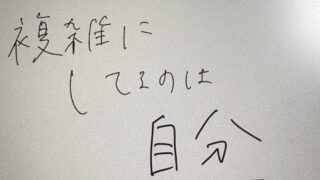 複雑に
してるのは
自分